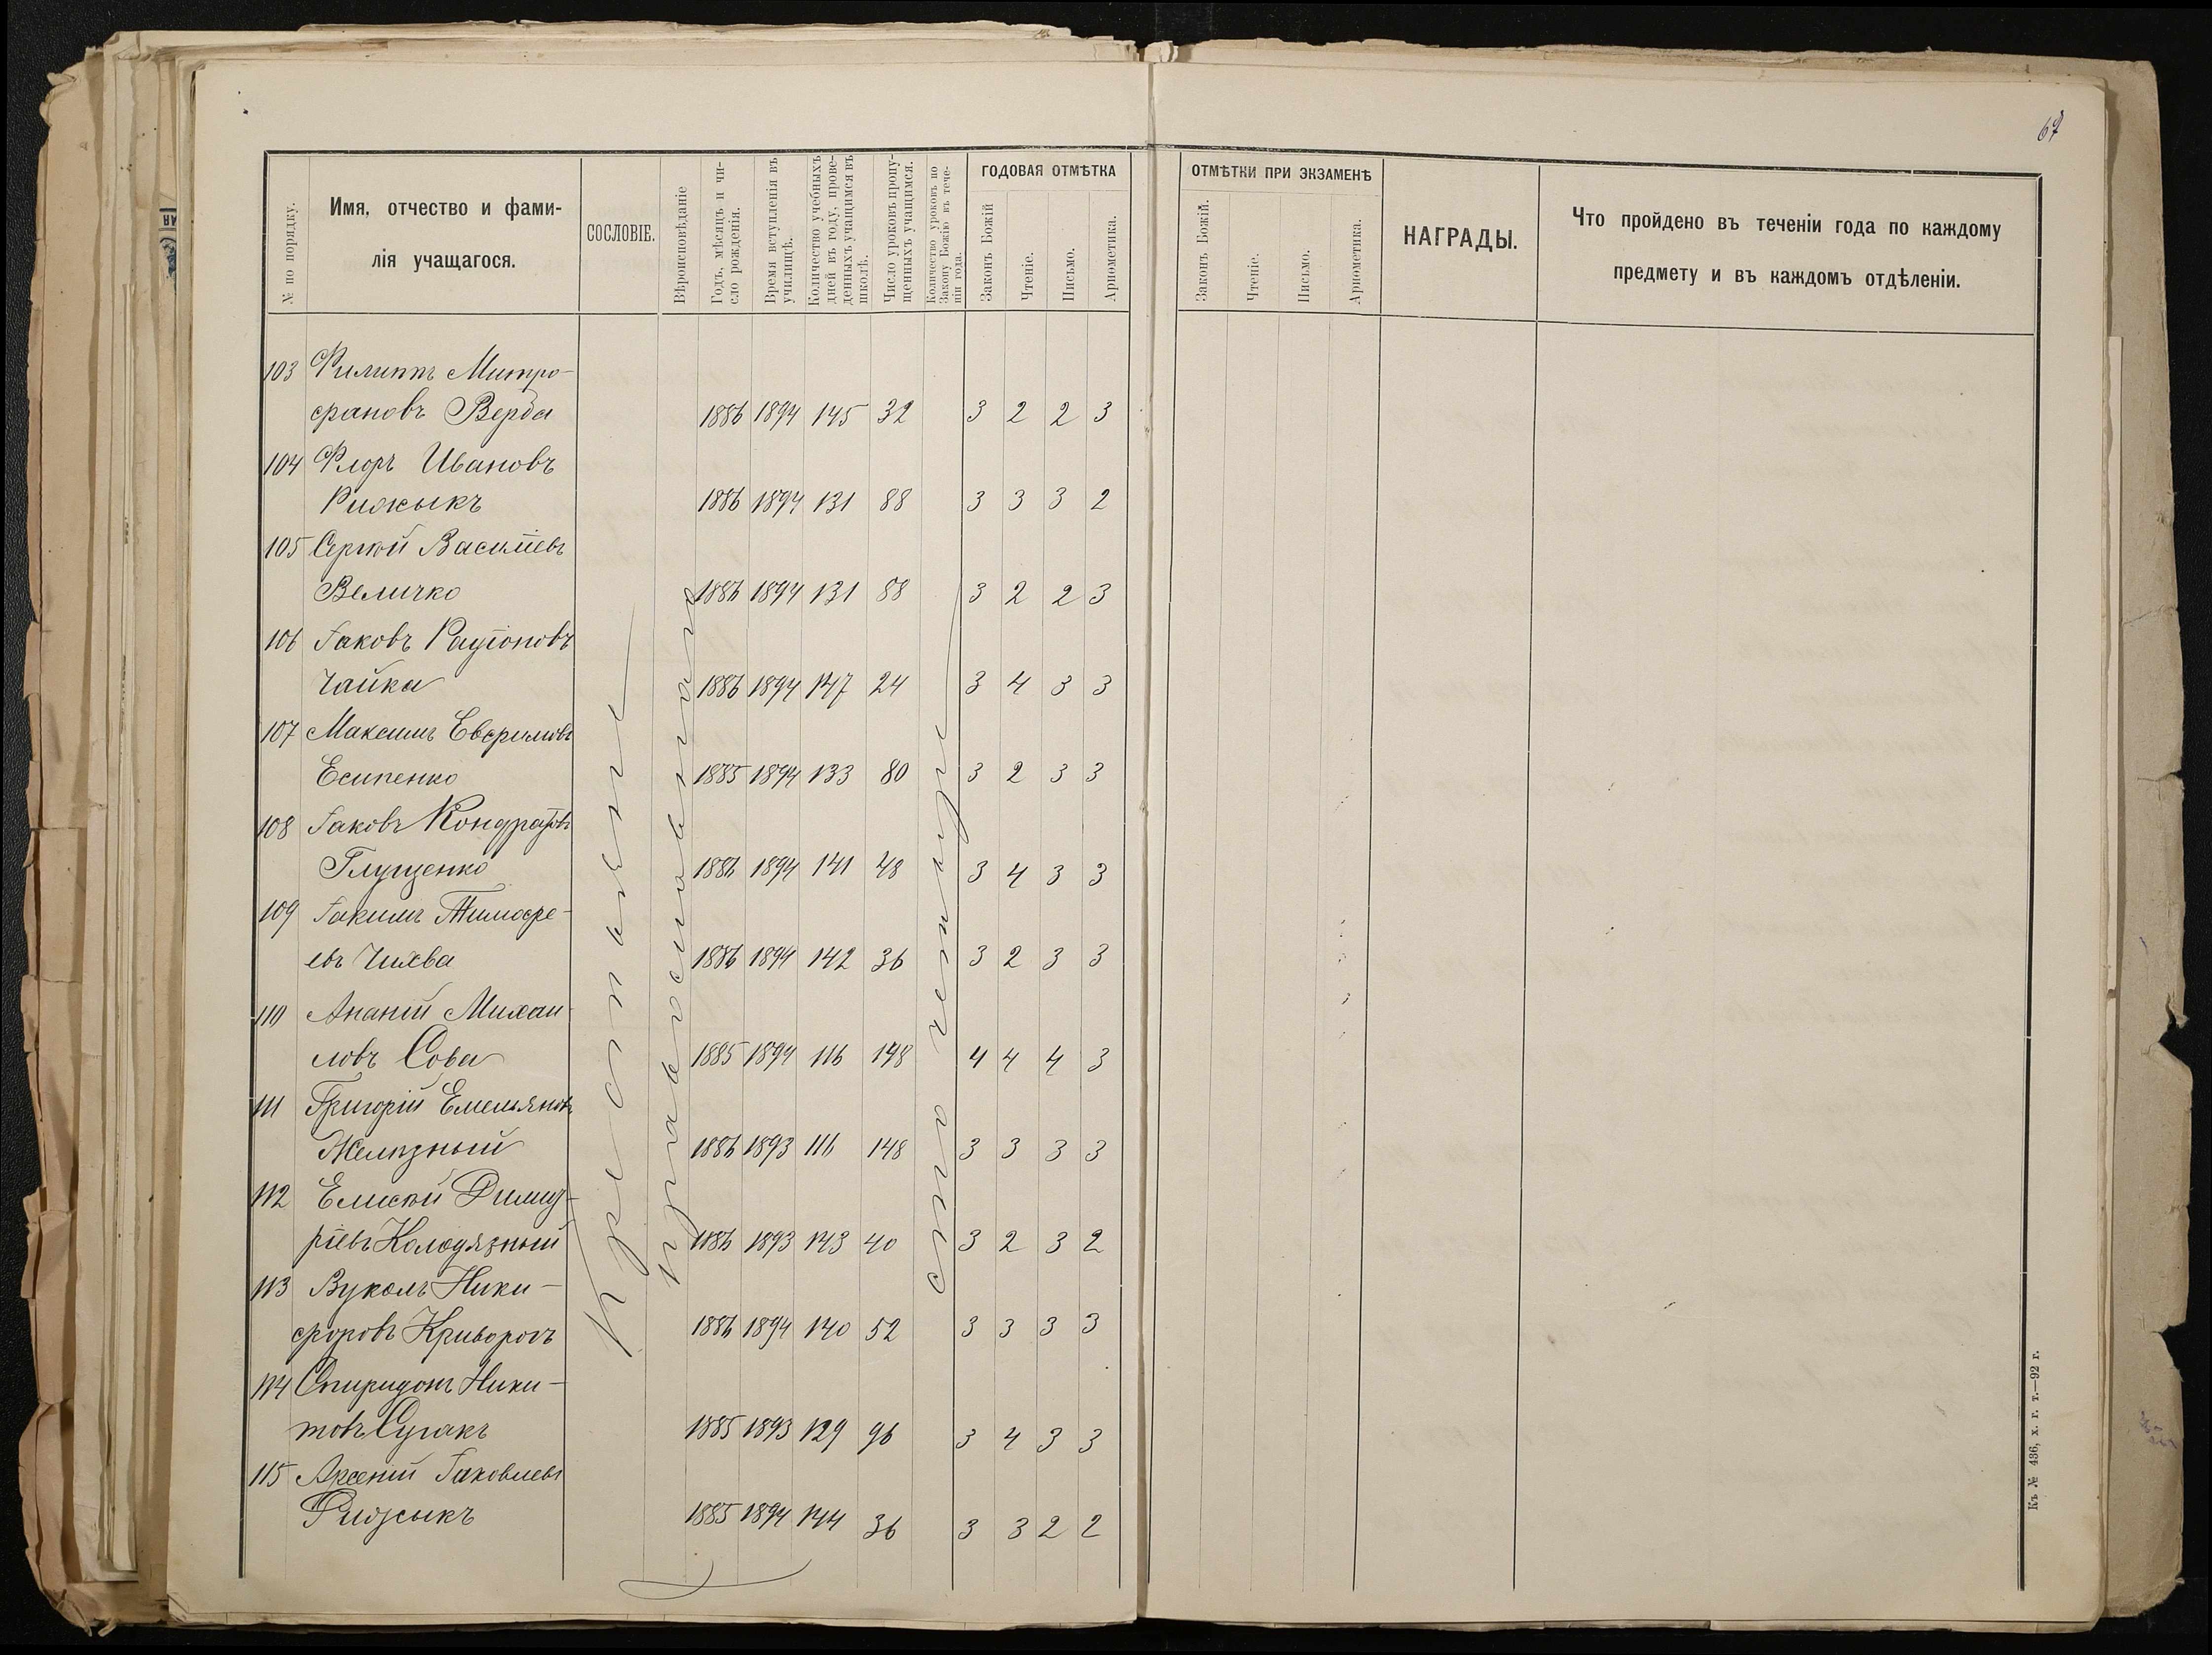 67
№ по порядку.
Имя, отчество и фами-
лія учащагося.
СОСЛОВІЕ.
Вѣроисповѣданіе
Годъ, мѣсяцъ и чи-
сло рожденія.
Время вступленія въ
училищѣ.
Количество учебныхъ
дней въ году, прове-
денныхъ учащимся въ
школѣ.
Число уроковъ пропу-
щенныхъ учащимся.
Количество уроковъ по
Закону Божію въ тече-
ніи года.
ГОДОВАЯ ОТМѢТКА
Законъ Божій
Чтеніе.
Письмо.
Ариѳметика.
ОТМѢТКИ ПРИ ЭКЗАМЕНѢ
Законъ Божій.
Чтеніе.
Письмо.
Ариѳметика.
НАГРАДЫ.
Что пройдено въ теченіи года по каждому
предмету и въ каждомъ отдѣленіи.
103 Филиппъ Митро-
фановъ Верба 1886 1894 145 32 3 2 2 3
104 Флоръ Ивановъ
Рижыкъ 1886 1894 131 88 3 3 3 2
105 Сергѣй Василіевъ
Величко 1886 1894 131 88 3 2 2 3
106 Іаковъ Радіоновъ
Чайка 1886 1894 147 24 3 4 3 3
107 Максимъ Евфимовъ
Есипенко 1885 1894 133 80 3 2 3 3
108 Іаковъ Кондратовъ
Глущенко 1886 1894 141 48 3 4 3 3
109 Іакимъ Тимофе-
евъ Чихва 1886 1894 142 36 3 2 3 3
110 Ананій Михаи-
ловъ Сова 1885 1894 116 148 4 4 4 3
111 Григорій Емельяновъ
Желѣзный 1886 1893 116 148 3 3 3 3
112 Елисѣй Димит-
ріевъ Колодязный 1886 1893 143 40 3 2 3 2
113 Вуколъ Ники-
форовъ Криворогъ 1886 1894 140 52 3 3 3 3
114 Спиридонъ Ники-
товъ Сугакъ 1885 1893 129 96 3 4 3 3
115 Арсеній Іаковлевъ
Рижыкъ 1885 1894 144 36 3 3 2 2
Крестьяне
православнаго
сто четыре
Къ № 436, х. г. т.—92 г.